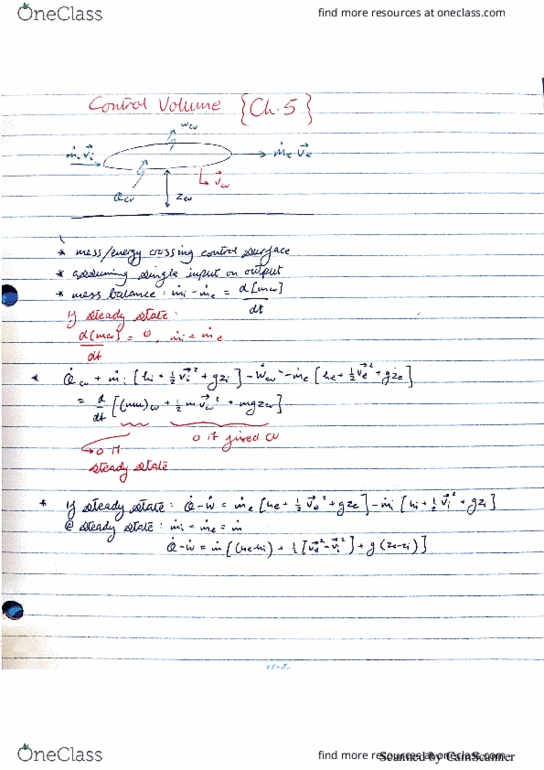 OneClass
find more resources at oneclass.com
Control Volume {Ch.5}
Ẇcv
ṁi v⃗i
ṁe v⃗e
v⃗cv
Qcv
zcv
* mass/energy crossing control surface
* assuming single input or output
* mass balance : ṁi - ṁe = d[mcv]/dt
if steady state :
d[mcv]/dt = 0, ṁi = ṁe
* Q̇cv + ṁi [hi + ½ v⃗i² + gzi] - Ẇcv - ṁe [he + ½ v⃗e² + gze]
= d/dt [(mu)cv + ½ m v⃗cv² + mgzcv]
0 if fixed CV
→ 0 if
steady state
* if steady state : Q̇-Ẇ = ṁe [he + ½ v⃗e² + gze] - ṁi [hi + ½ v⃗i² + gzi]
@ steady state : ṁi = ṁe = ṁ
Q̇-Ẇ = ṁ [(he-hi) + ½ [v⃗e² - v⃗i²] + g (ze-zi)]
OneClass
find more resources at oneclass.com
Scanned by CamScanner